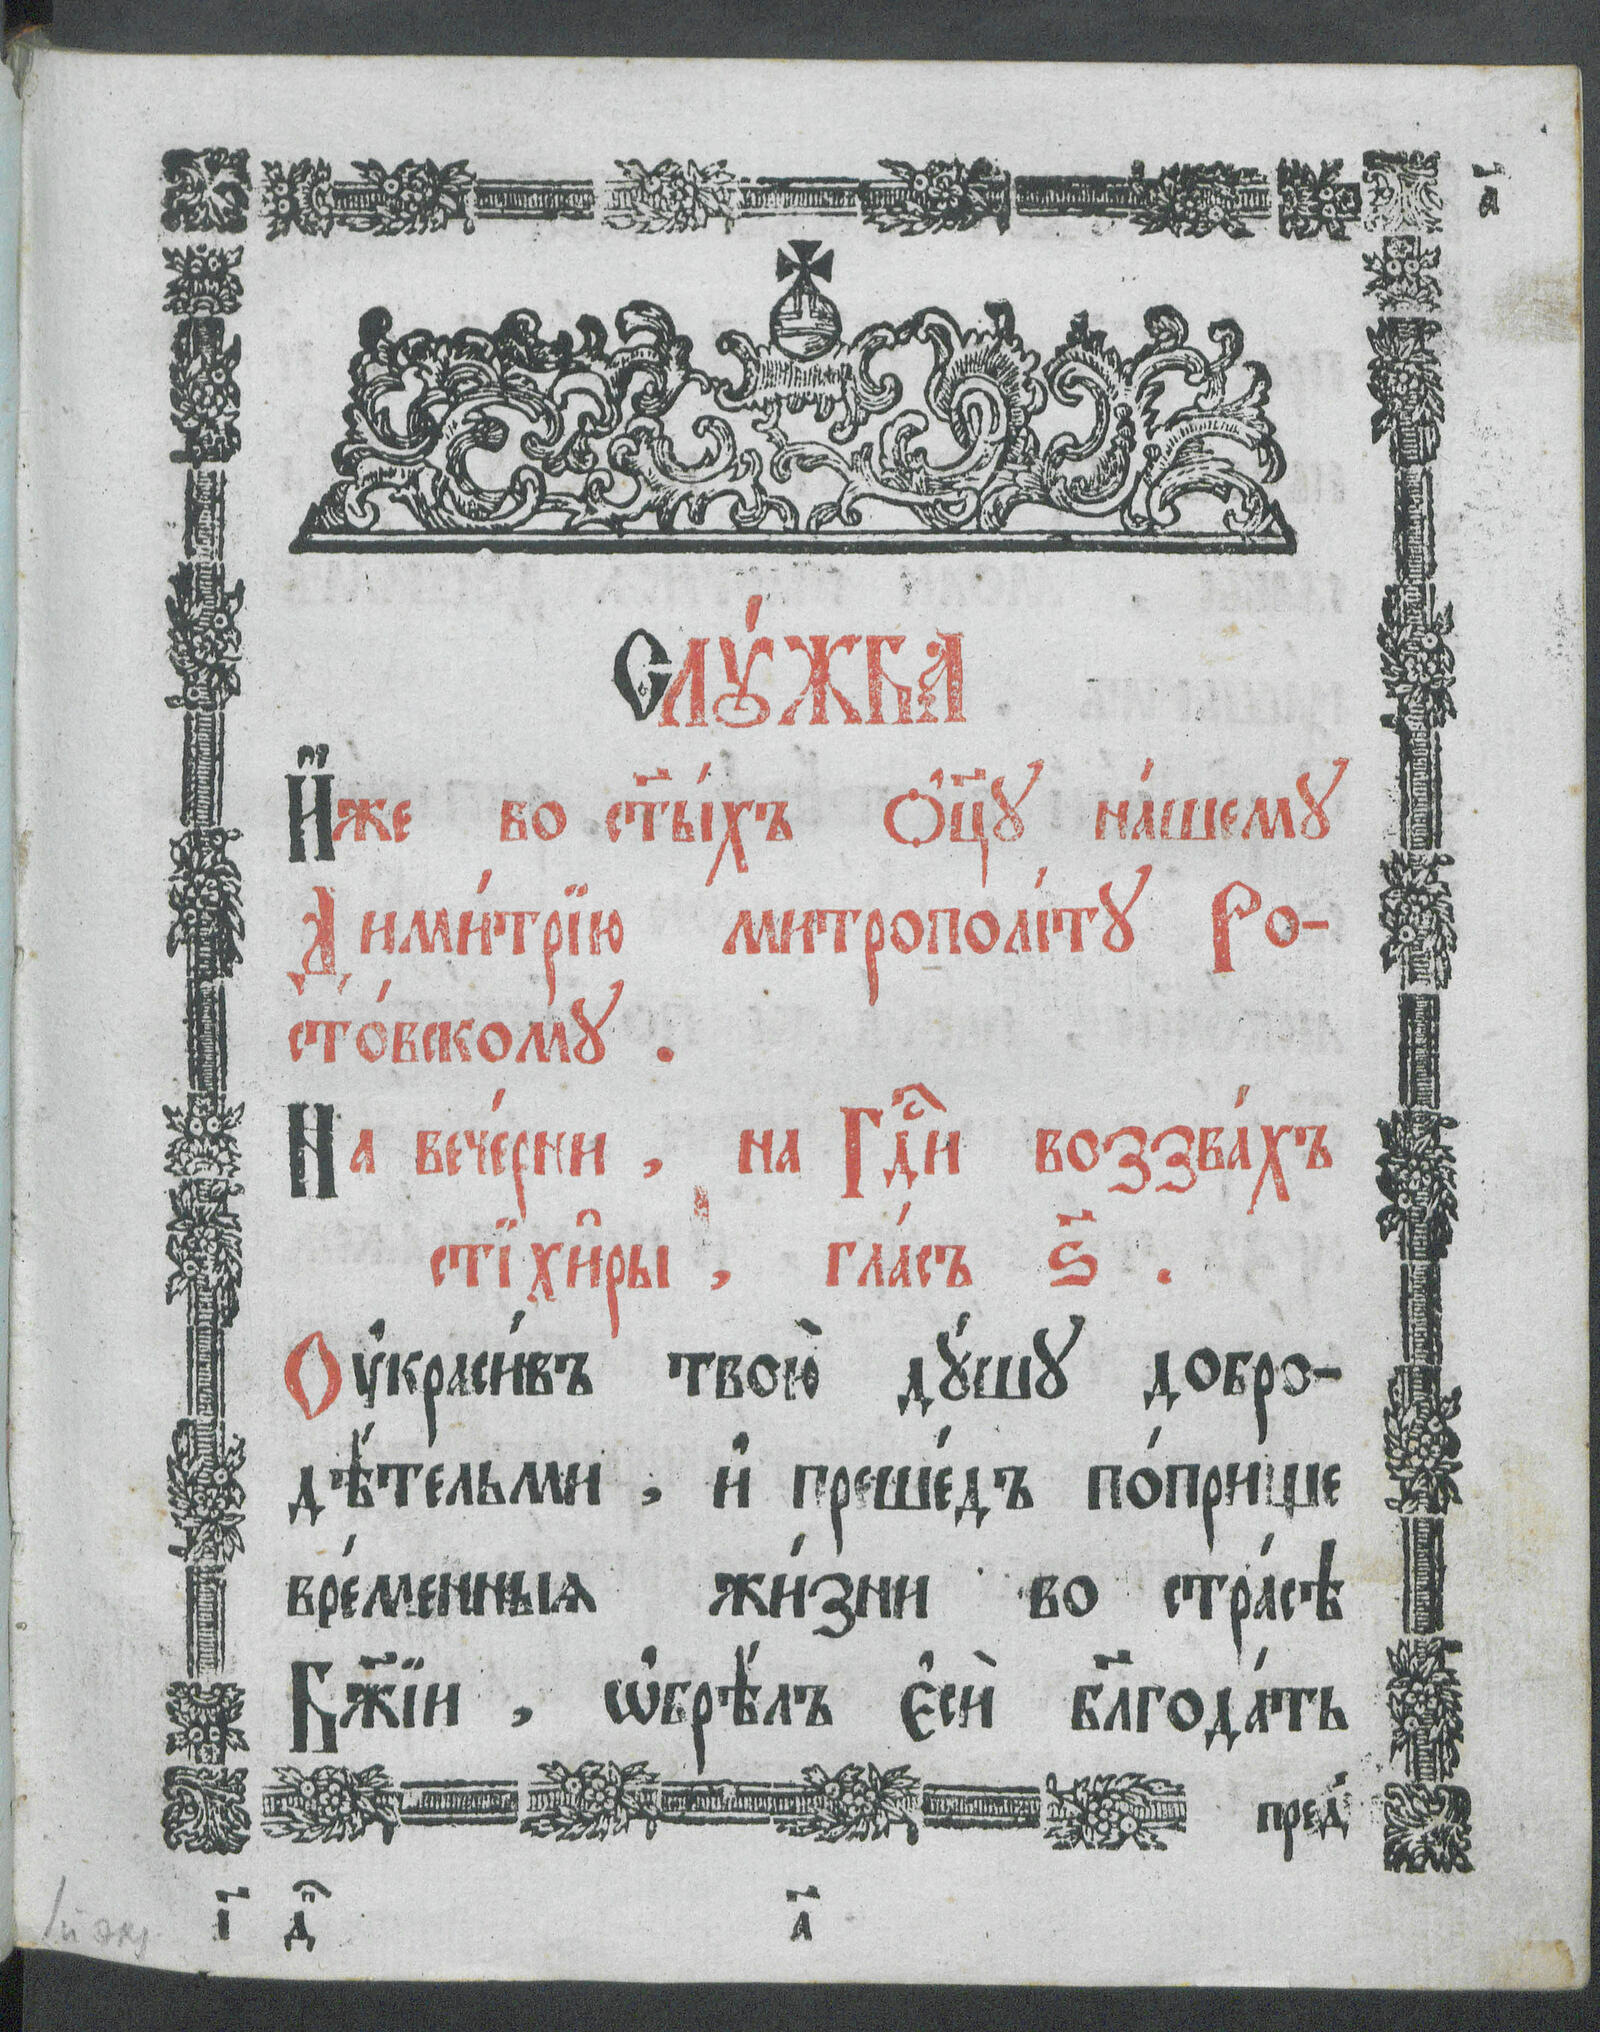 а҃
Слꙋ́жба
И҆́же во ст҃ы́хъ Ѻ҆ц҃ꙋ̀ на́шемꙋ
Дими́трїю митрополі́тꙋ Ро-
сто́вскомꙋ .
На вече́рни , на Гдⷭ҇и воззва́хъ
стїхи̑ры , гла́съ ѕ҃ .
Оу҆краси́въ твою̀ дꙋ́шꙋ добро-
дѣ́тельми , и҆ преше́дъ по́прище
вре́менныѧ жи́зни во стра́сѣ
Бж҃їи , ѡ҆брѣ́лъ є҆сѝ бл҃года́ть
пред̾
і҃ дⷭ҇ а҃